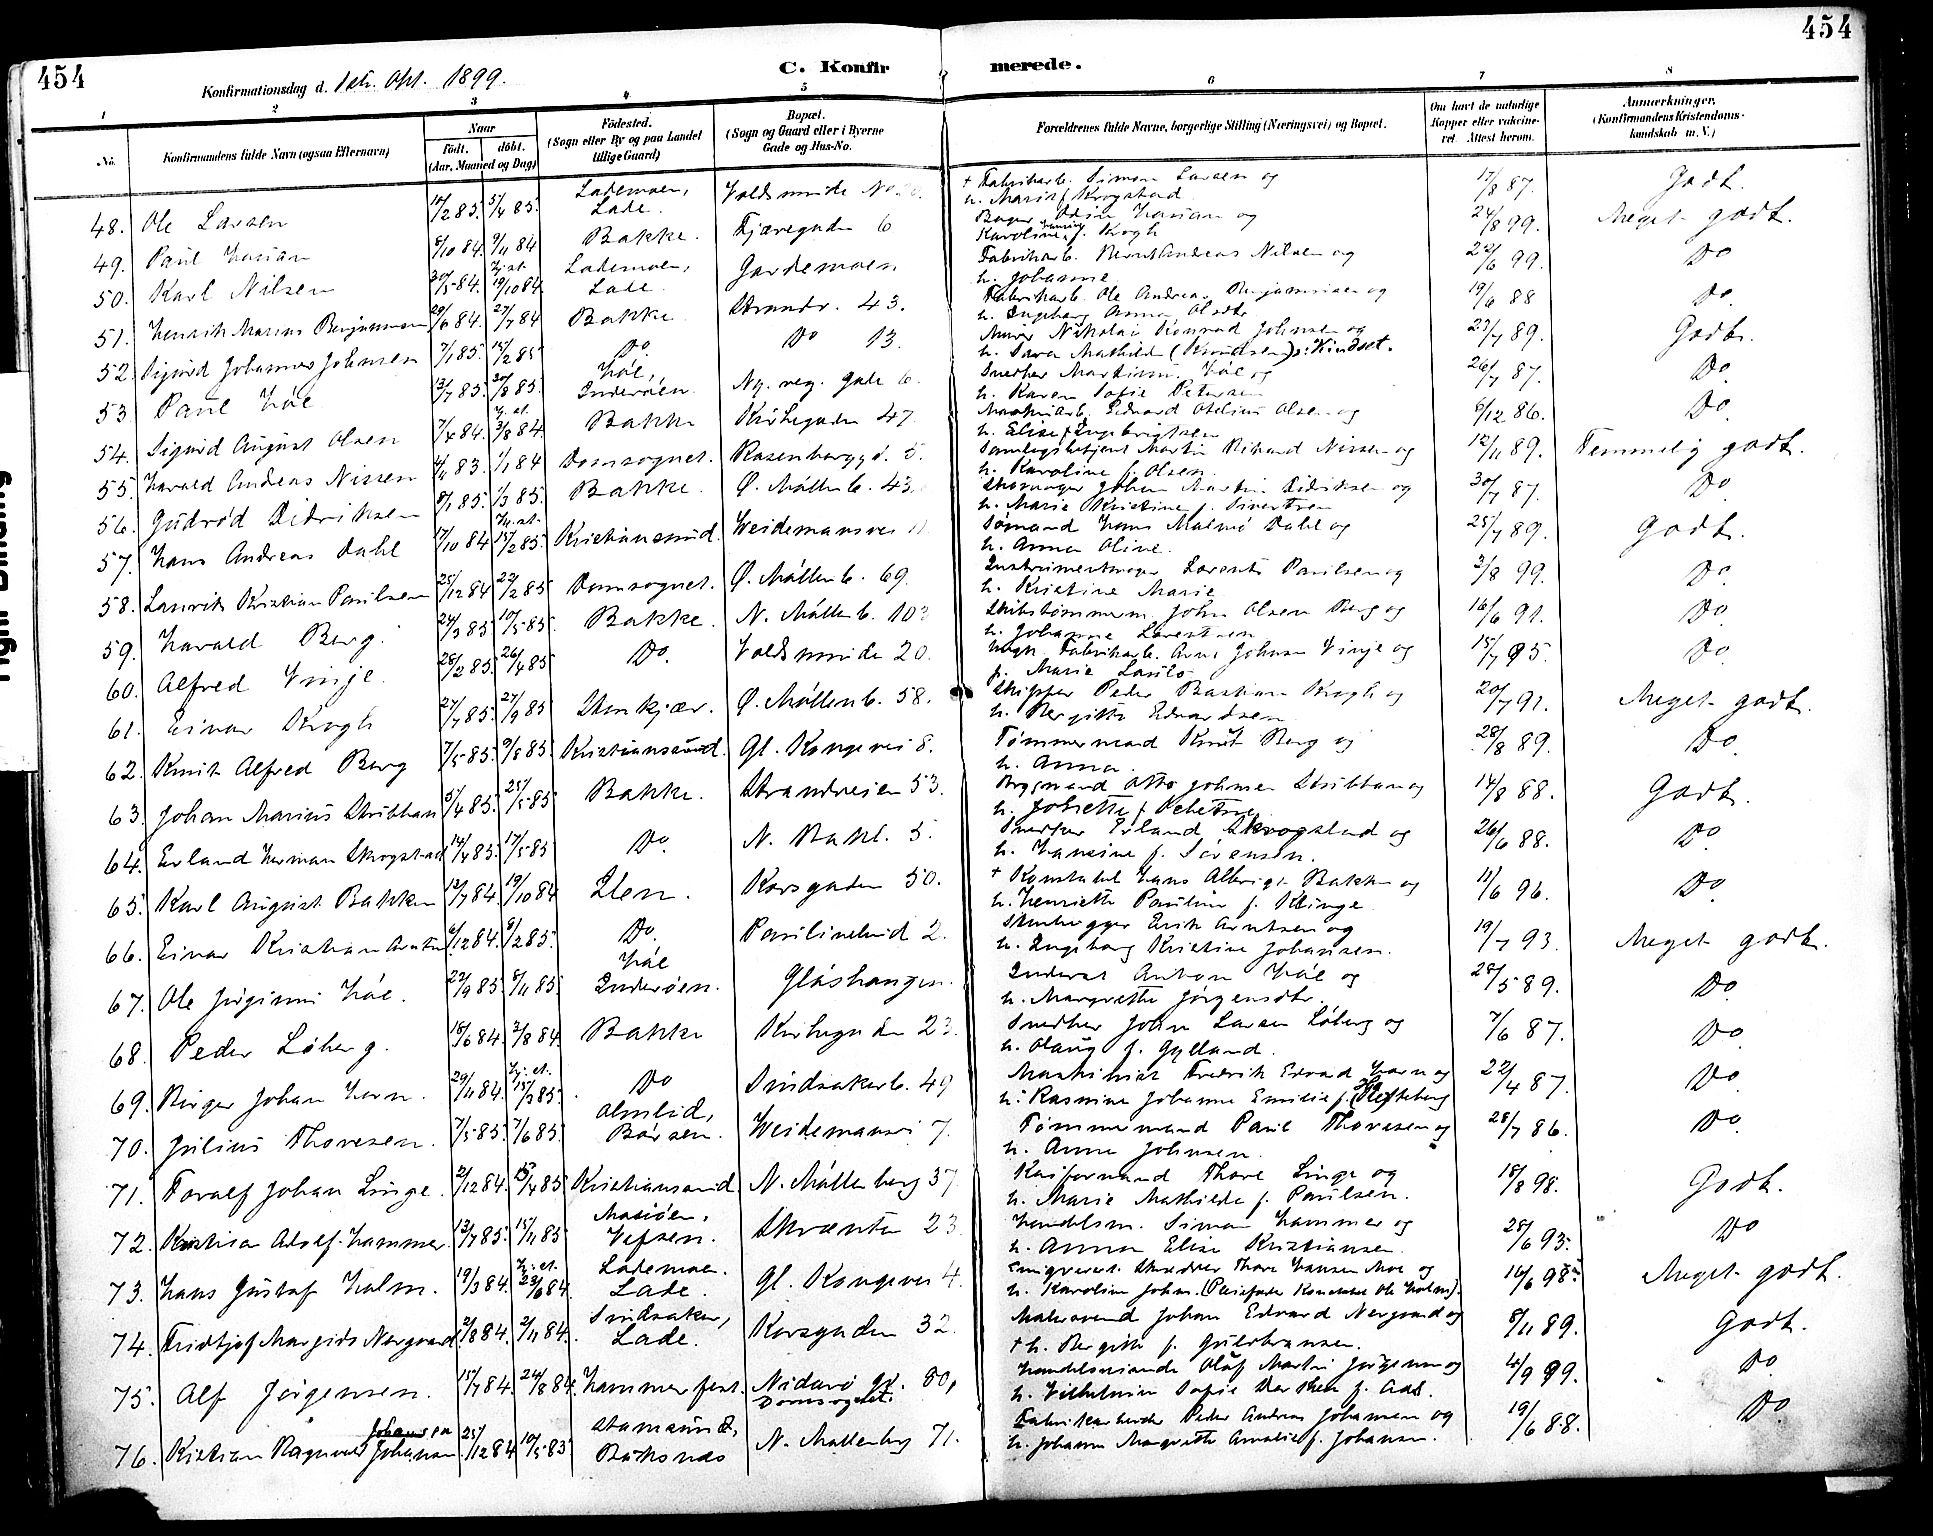 454
454
Konfirmationsdag d. 1ste Okt. 1899.
C. Konfirmerede.
1 2 3 4 5 6 7 8
No.
Konfirmandens fulde Navn (ogsaa Efternavn)
Naar
Født. døbt.
(Aar, Maaned og Dag)
Fødested.
(Sogn eller By og paa Landet tillige Gaard)
Bopæl.
(Sogn og Gaard eller i Byerne Gade og Hus-No.
Forældrenes fulde Navne, borgerlige Stilling (Næringsvei) og Bopæl.
Om havt de naturlige Kopper eller vaccineret. Attest herom.
Anmærkninger.
(Konfirmandens Kristendomskundskab m. V.)
48. Ole Larsen 5/4 85. Lademoen, Lade. Voldsminde † Fabrikarb. Simon Larsen og h. Marie f. Krogstad 17/8 87. Godt.
49. Paul 8/10 84. 9/11 84 Bakke. Fjæregaden 6 Bager og Karoline f. Kogh 24/8 99. Meget godt.
50. Karl Nilsen 30/5 84. Hj. st. 19/10 84. Lademoen, Lade. Gardemoen Fabrikarb. Bernt Andreas Nilsen og h. Johanne 22/6 99. Do
51. Henrik Marius Benjaminsen 29/6 84. 27/7 84 Bakke Strandv. 43. Fabrikarb. Ole Andreas Benjaminsen og h. Ingeborg Anna Olsdtr 19/6 88 Do.
52. Sigurd Johannes Johnsen 7/1 85. 15/2 85 Do. Do 13. Murer Nikolai Konrad Johnsen og h. Sara Mathilde (Knudsen) : Kindset. 23/7 89. Godt.
53 Paul Hol 13/7 85. 30/8 85. Hol, Inderøen. Ny. veg. gade 6. Snedker Martinus Hol og h. Karen Sofie Petersen 26/7 87. Do
54. Sigurd August Olsen 7/4 84. Hj. st. 3/8 84. Bakke Kirkegaden 47. Maskinarb. Edvard Otelius Olsen og h. Elise f. Ingebrigtsen 8/12 86. Do
55. Harald Andreas Nissen 4/11 83. 1/1 84 Domsognet. Rosenborggd. 5. Martin Rikard Nissen og h. Karoline f. Olsen. 12/11 89. Temmelig godt.
56. Gudrød Didriksen 8/1 85. 1/3 85. Bakke. Ø. Møllenb. 43. Skomager Johan Martin Didriksen og h. Marie Kristine f. Sivertsen 30/7 87. Do
57. Hans Andreas Dahl 17/10 84 Hj. st. 15/2 85. Kristianssund. Weidemansvei 11 Sømand Hans Malmø Dahl og h. Anna Oline. 25/7 89. Godt.
58. Laurits Kristian Paulsen 25/12 84 22/2 85. Domsognet. Ø. Møllenb. 69. Instrumentmager Lorents Paulsen og h. Kristine Marie 3/8 99. Do
59. Harald Berg. 24/3 85 10/5 85. Bakke. N. Møllenb. 103 Skibstømmerm. John Olsen Berg og h. Johanne Lorentsen 16/6 91. Do
60. Alfred Vinje. 28/2 85. 26/4 85 Do. Voldsminde 20. Ugft. Fabrikarb. Arne Johnsen Vinje og p. Marie Laulo 15/7 95. Do
61. Einar Krogh 27/7 85. 27/9 85 Stenkjær. Ø. Møllenb. 58. Skipper Peder Bastian Krogh og h. Bergitte Edvardsen 20/7 91. Meget godt.
62. Knut Alfred Berg 7/5 85. 9/8 85 Kristianssund. Gl. Kongevei 8. Tømmermand Knut Berg og h. Anna. 28/8 89. Do
63. Johan Marius Stribban 5/4 85. 25/5 85 Bakke. Strandveien 53. Otto Johnsen Stribban og h. Jokette f. 14/8 88. Godt.
64. Erland Herman Skogstad 14/4 85. 17/5 85 Do. N. Bakl. 5. Snedker Erland Skrogstad og h. Hansine f. Sørensen. 26/6 88. Do
65. Karl August Bakken 12/7 84. 19/10 84 Ilen. Korsgaden 50. † Konstabel Hans Albrigt Bakken og h. Henriette Pauline f. Klinge 11/6 96. Do
66. Einar Kristian Arntsen 6/12 84. 8/2 85. Do. Paulinelund 2. Stenhugger Erik Arntsen og h. Ingeborg Kristine Johansen. 19/7 93. Meget godt.
67. Ole Jørginus Hol. 27/9 85 8/11 85. Hol Inderøen. Gløshaugen. Inderst Anton Hol og h. Margrethe Jørgensdtr. 28/5 89. Do
68. Peder Løberg. 15/6 84 3/8 84. Bakke Kirkegaden 23. Snedker John Larsen Løberg og h. Olaug f. Gylland. 7/6 87. Do
69. Birger Johan Horn. 29/11 84. Hj. st. 15/3 85. Do Sindsakerb. 49 Maskinist Fredrik Edvard Horn og h. Rasmine Johanne Emilie f. Hefteberg 22/4 87. Do
70. Julius Thoresen. 7/5 85. 7/6 85. Olmlid, Børsen. Weidemansvei 7. Tømmermand Paul Thoresen og h. Anna Johnsen. 28/7 86. Do
71. Toralf Johan Linge. 2/12 84. 13/4 85 Kristianssund N. Møllenberg 37 Thore Linge og h. Marie Mathilde f. Paulsen. 18/8 98. Godt.
72. Kristian Adolf Hammer 13/7 85. 15/11 85 Mosjøen, Vefsen. Skrænten 23 Handelsm. Simon Hammer og h. Anna Elise Kristiansen. 28/6 93. Do
73. Hans Gustaf Holm. 19/3 84. Hj. st. 23/6 84 Lademoen. Lade. Gl. Kongevei 4. Emigreret Skrædder Thore Hansen Moe og h. Karoline Johns. (Pleiefader Konstabel Ole Holm). 16/6 98. Meget godt.
74. Fridtjof Margido Nergaard 2/8 84. 2/11 84. Sindsaker, Lade. Korsgaden 32. Malersvend Johan Edvard Nergaard og † h. Bergitte f. Guldbransen. 8/11 89. Godt.
75. Alf Jørgensen. 15/7 84. 24/8 84 Hammerfest. Nidarø gd. 80, Domsognet. Handelsreisende Olaf Martin Jørgensen og h. Vilhelmine Sofie f. Aas. 4/9 99. Do
76. Kristian Ragnvald Johansen Johansen 25/12 84 10/5 85 Stamsund, Buksnes N. Møllenberg 71. Fabrikarbeider Peder Andreas Johansen og h. Johanne Margrethe Amalie f. Johansen. 19/6 88. Do